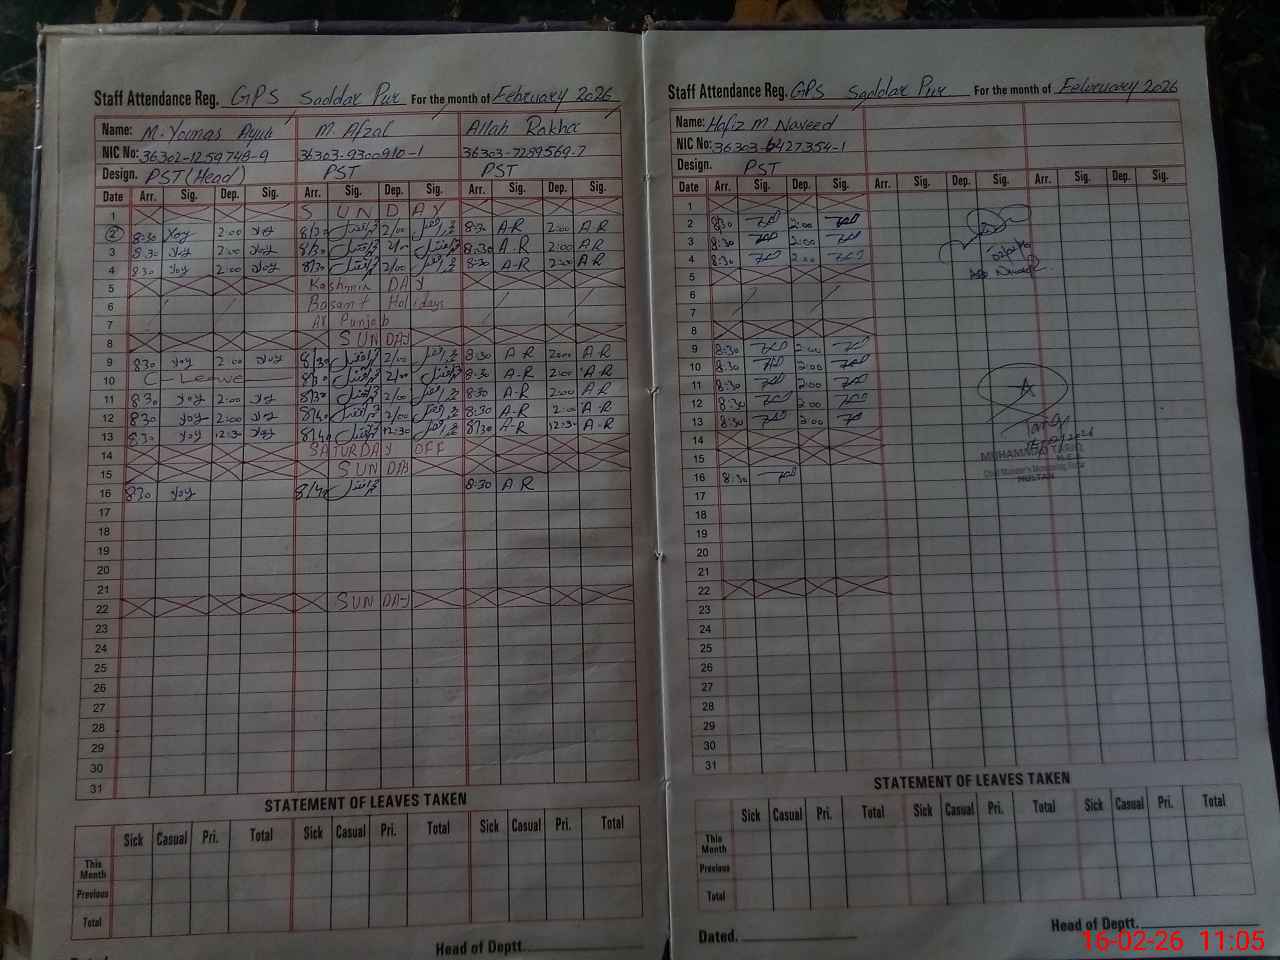 Staff Attendance Reg. GPS Saddar Pur For the month of February 2026
Name: M. Younas Ayub M. Afzal Allah Rakha
NIC No: 36302-1259748-9 36303-9300910-1 36303-7289569-7
Design. PST (Head) PST PST
Date Arr. Sig. Dep. Sig. Arr. Sig. Dep. Sig. Arr. Sig. Dep. Sig.
1 SUNDAY
2 8:30 2:00 8/30 2/00 8:30 A-R 2:00 A R
3 8:30 2:00 8/30 2/00 8:30 A-R 2:00 A R
4 8:30 2:00 8/30 2/00 8:30 A-R 2:00 A R
5 Kashmir DAY
6 Basant Holidays
7 All Punjab
8 SUNDAY
9 8:30 2:00 8/30 2/00 8:30 A-R 2:00 A-R
10 C-Leave 8/30 2/00 8:30 A-R 2:00 A-R
11 8:30 2:00 8/30 2/00 8:30 A-R 2:00 A-R
12 8:30 2:00 8/40 2/00 8:30 A-R 2:00 A-R
13 8:30 12:30 8/40 12:30 8/30 A-R 12:30 A-R
14 SATURDAY OFF
15 SUNDAY
16 8:30 8/40 8:30 A-R
17
18
19
20
21
22 SUNDAY
23
24
25
26
27
28
29
30
31
STATEMENT OF LEAVES TAKEN
Sick Casual Pri. Total Sick Casual Pri. Total Sick Casual Pri. Total
This Month
Previous
Total
Head of Deptt.
Staff Attendance Reg. GPS Saddar Pur For the month of February 2026
Name: Hafiz M Naveed
NIC No: 36303-6427354-1
Design. PST
Date Arr. Sig. Dep. Sig. Arr. Sig. Dep. Sig. Arr. Sig. Dep. Sig.
1
2 8:30 2:00
3 8:30 2:00
4 8:30 2:00
5
6
7
8
9 8:30 2:00
10 8:30 2:00
11 8:30 2:00
12 8:30 2:00
13 8:30 2:00
14
15 MUHAMMAD TARIQ
16 8:30
MULTAN
17
18
19
20
21
22
23
24
25
26
27
28
29
30
31
STATEMENT OF LEAVES TAKEN
Sick Casual Pri. Total Sick Casual Pri. Total Sick Casual Pri. Total
This Month
Previous
Total
Dated. Head of Deptt.
16-02-26 11:05